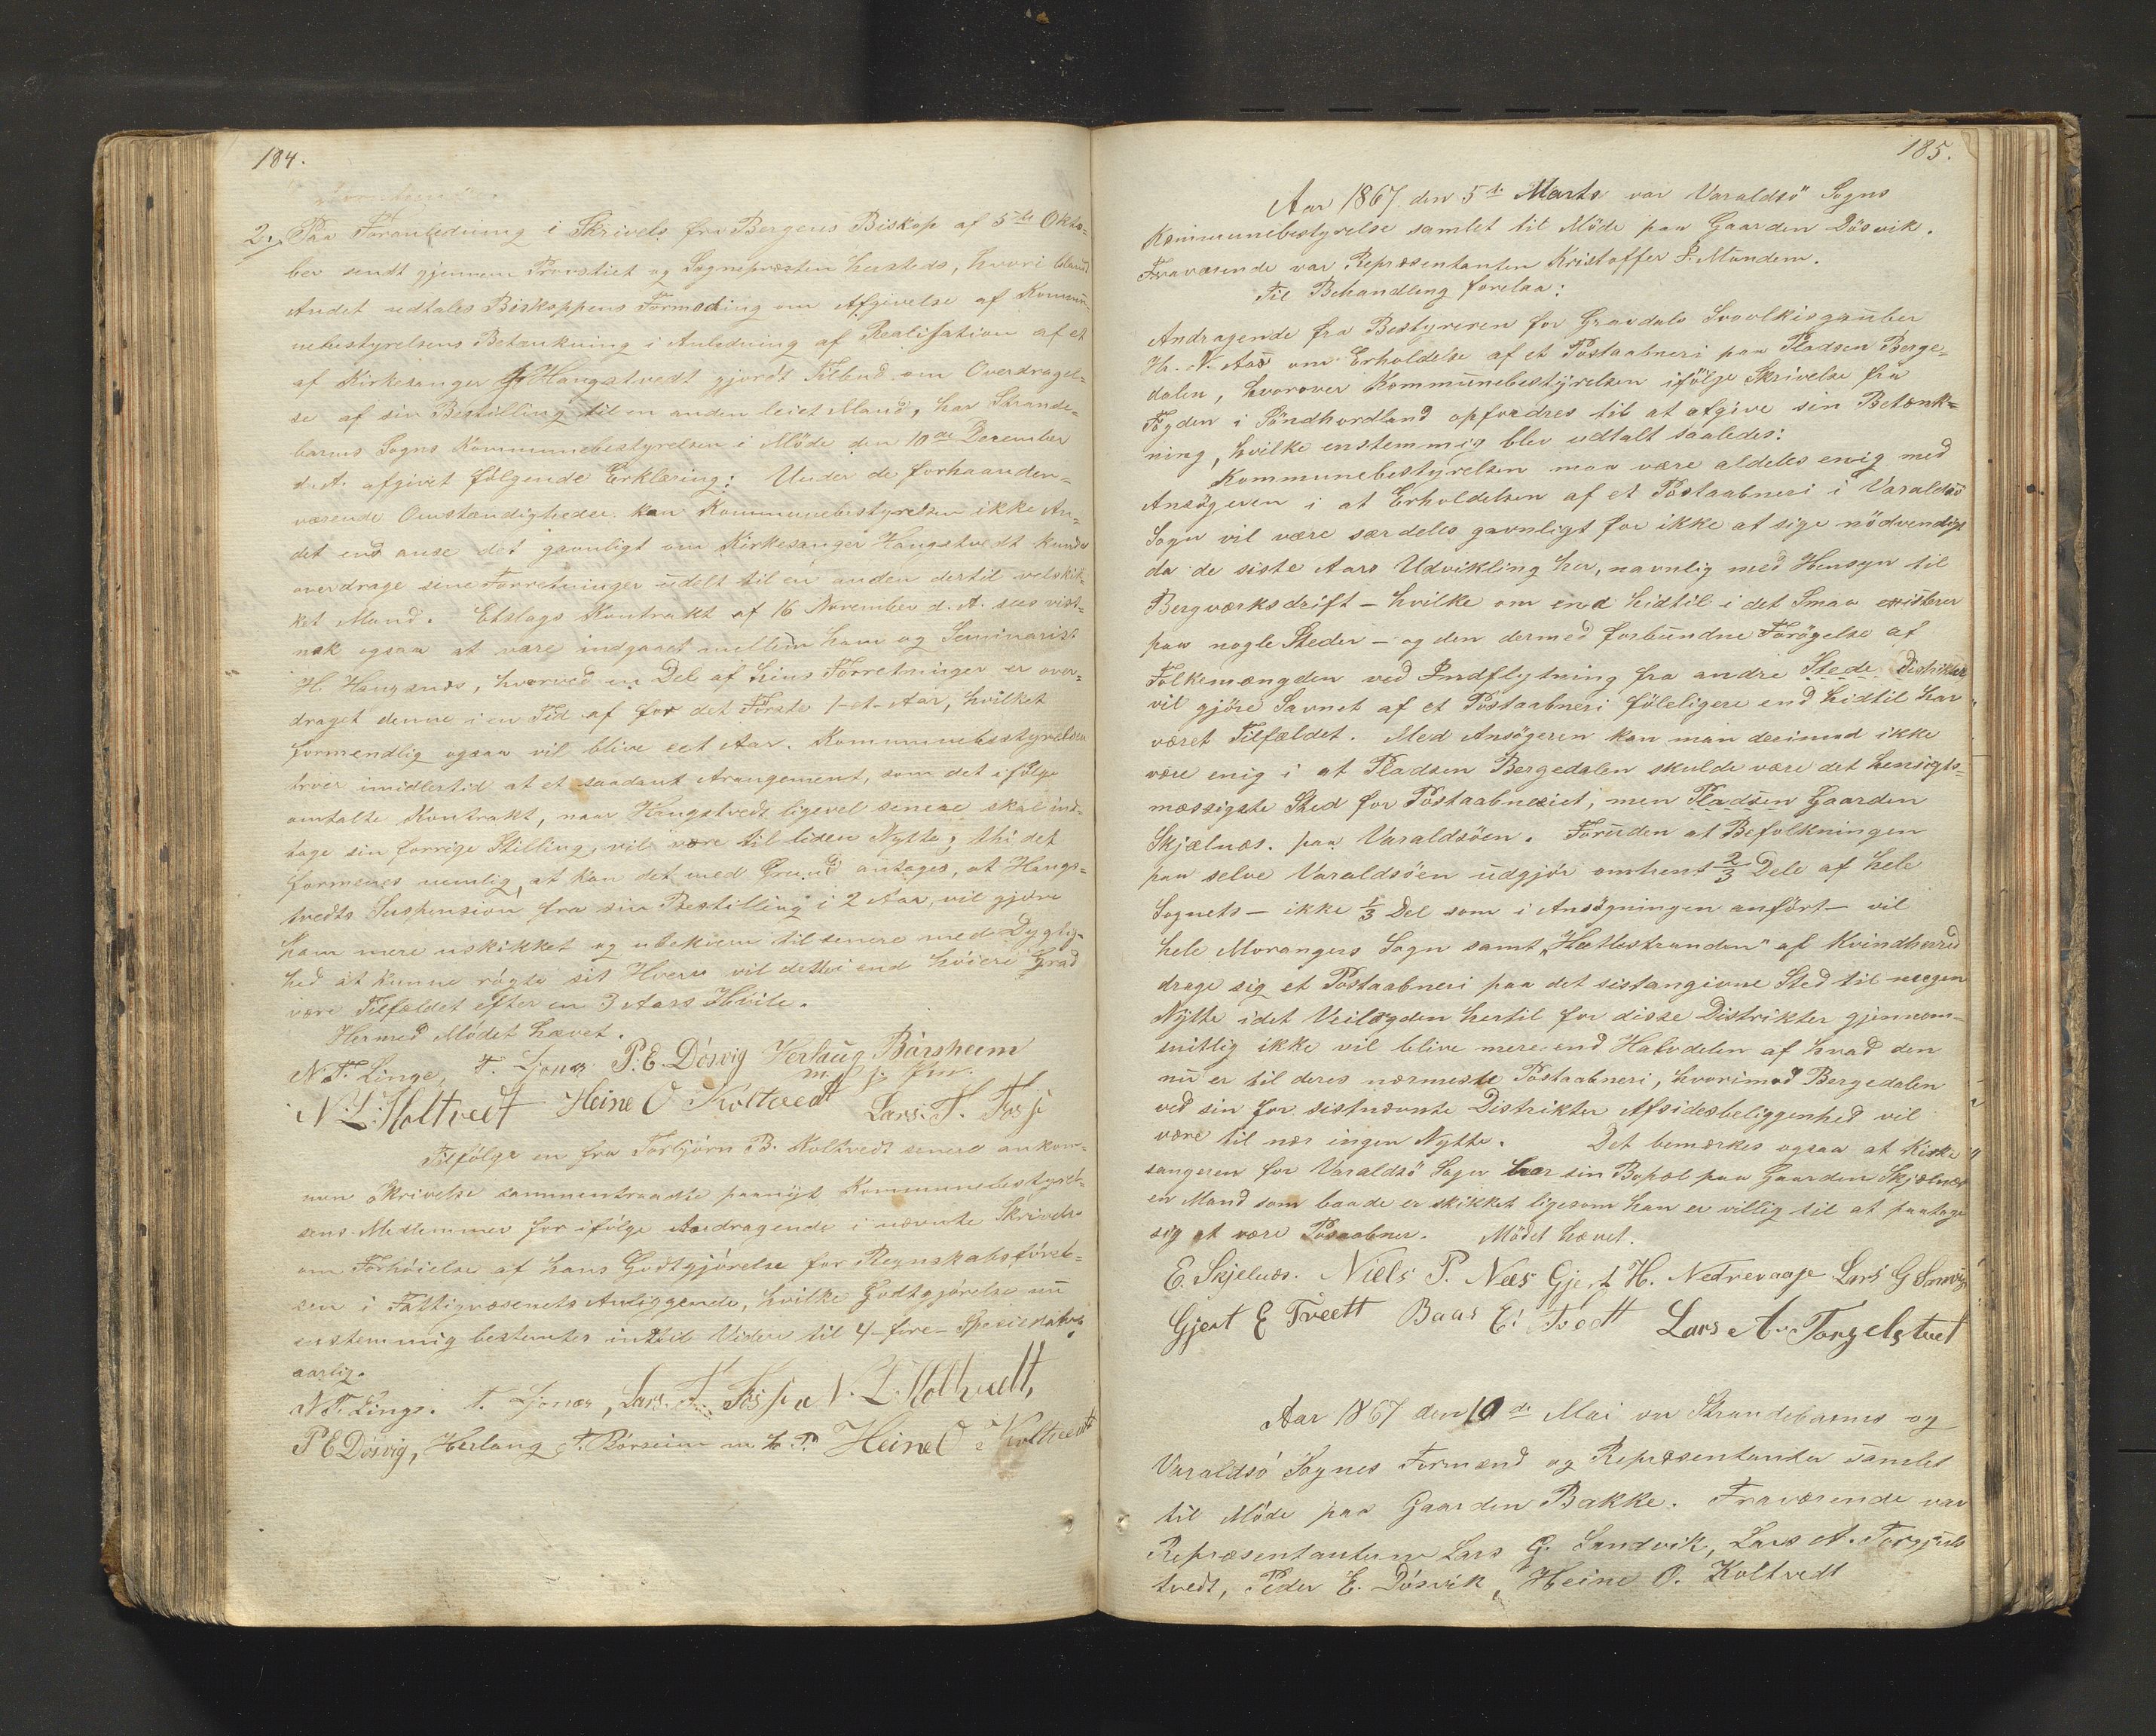 184.
2. Paa Foranledning i Skrivels fra Bergens Biskop af 5te Okto-
ber sendt gjennem Provstiet og Sognepresten hersteds, hvori blandt
Andet udtales Biskoppens Formoding om Afgivelse af Kommu-
nebestyrelsens Betænkning i Anledning af Realisation af et
af Kirkesanger Haugstvedt gjordt Tilbud om Overdragel-
se af sin Bestilling til en anden leiet Mand, har Strande-
barms Sogns Kommunebestyrelsen i Møde den 10de December
d. A. afgivet følgende Erklæring: Under de forhaanden-
værende Omstændigheder kan Kommunebestyrelsen ikke An-
det end anse det gavnligt om Kirkesanger Haugstvedt kunde
overdrage sine Forretninger udelt til en anden dertil velskik-
ket Mand. Etslags Kontrakt af 16 November d. A. sees vist-
nok ogsaa at være indgaaet mellem ham og Seminarist
H. Haugenæs, hvorved en Del af hins Forretninger er over-
draget denne i en Tid af for det Første 1-et-Aar, hvilket
formendlig ogsaa vil blive eet Aar. Kommunebestyrelsen
troer imidlertid at et saadant Arangement, som det ifølge
omtalte Kontrakt, naar Haugstvedt ligevel senere skal ind-
tage sin forrige Stilling, vil være til liden Nytte; thi det
formenes nemlig, at kan det med Grund antages, at Haugs-
tvedts Suspension fra sin Bestilling i 2 Aar, vil gjøre
ham mere uskikket og ubekvem til senere med Dygtig-
hed at kunne røgte sit Hverv vil dette i end høiere Grad
være Tilfældet efter en 3 Aars Hvile.
Hermed Mødet hævet.
N. T. Linge, T. Jonas P. E. Dösvig Herlaug Börsheim
m. p. p.
N. L. Holtvedt Heine O Koltvedt Lars. T. Fosse
Tilfølge en fra Torbjørn B. Koltvedt senere ankom-
men Skrivelse sammentraadte paanyt Kommunebestyrel-
sens Medlemmer for ifølge Andragende i nævnte Skrivelse
om Forhøielse af hans Godtgjørelse for Regnskabsførel-
sen i Fattigvæsenets Anliggende, hvilke Godtgjørelse nu
enstemmig bestemtes inttil Videre til 4-fire-Speciedaler
aarlig.
N T. Linge. T. Jonas, Lars. T. Fosse N. L. Holtvedt,
P E Dösvig, Herlaug T. Börseim m. p. P. Heine O Koltvedt
185.
Aar 1867 den 5te Marts var Varaldsö Sogns
Kommunebestyrelse samlet til Møde paa Gaarden Dösvik.
Fraværende var Repræsentanten Kristoffer P. Mundem.
Til Behandling forelaa:
Andragende fra Bestyreren for Gravdals Svovlkisgruber
H. N. Aas om Erholdelse af et Postaabneri paa Pladsen Berge-
dalen, hvorover Kommunebestyrelsen ifølge Skrivelse fra
Fogden i Söndhordland opfordres til at afgive sin Betænk-
ning, hvilke enstemmig blev udtalt saaledes:
Kommunebestyrelsen maa være aldeles enig med
Ansøgeren i at Erholdelsen af et Postaabneri i Varaldsö
Sogn vil være særdeles gavnligt for ikke at sige nödvendigt
da de siste Aars Udvikling her, navnlig med Hensyn til
Bergværksdrift - hvilke om end hidtil i det Smaa existerer
paa nogle Steder - og den dermed forbundne Forøgelse af
Folkemængden ved Indflytning fra andre Stede Distrikter
vil gjøre Savnet af et Postaabneri føleligere end hidtil har
været Tilfældet. Med Ansøgeren kan man derimod ikke
være enig i at Pladsen Bergedalen skulde være det hensigts-
mæssigste Sted for Postaabneriet, men Pladsen Gaarden
Skjælnæs. paa Varaldsöen. Foruden at Befolkningen
paa selve Varaldsöen udgjør omtrent 2/3 Dele af hele
Sognets - ikke 1/3 Del som i Ansøgningen anført - vil
hele Morangers Sogn samt "Hatlestranden" af Kvindherred
drage sig et Postaabneri paa det sistangivne Sted til megen
Nytte idet Veilægden hertil for disse Distrikter gjennem-
snitlig ikke vil blive mere end Halvdelen af hvad den
nu er til deres nærmeste Postaabneri, hvorimod Bergedalen
ved sin for sistnævnte Distrikter Afsidesbeliggenhed vil
være til nær ingen Nytte. Det bemærkes ogsaa at Kirke-
sangeren for Varaldsö Sogn har sin Bopæl paa Gaarden Skjælnæs
en Mand som baade er skikket ligesom han er villig til at paatage
sig at være Posaabner. Mödet hævet.
E. Skjelnæs. Niels P. Næs Gjert H. Nedrevaage Lars G Sandvig
Gjert E Tveett Baar E: Tvedt Lars A. Torgelstvet
Aar 1867 den 10de Mai var Strandebarms og
Varaldsö Sognes Formænd og Repræsentanter samlet
til Møde paa Gaarden Bakke. Fraværende var
Repræsentanterne Lars G. Sandvik, Lars A. Torgjuls
tvedt, Peder E. Dösvik, Heine O. Koltvedt